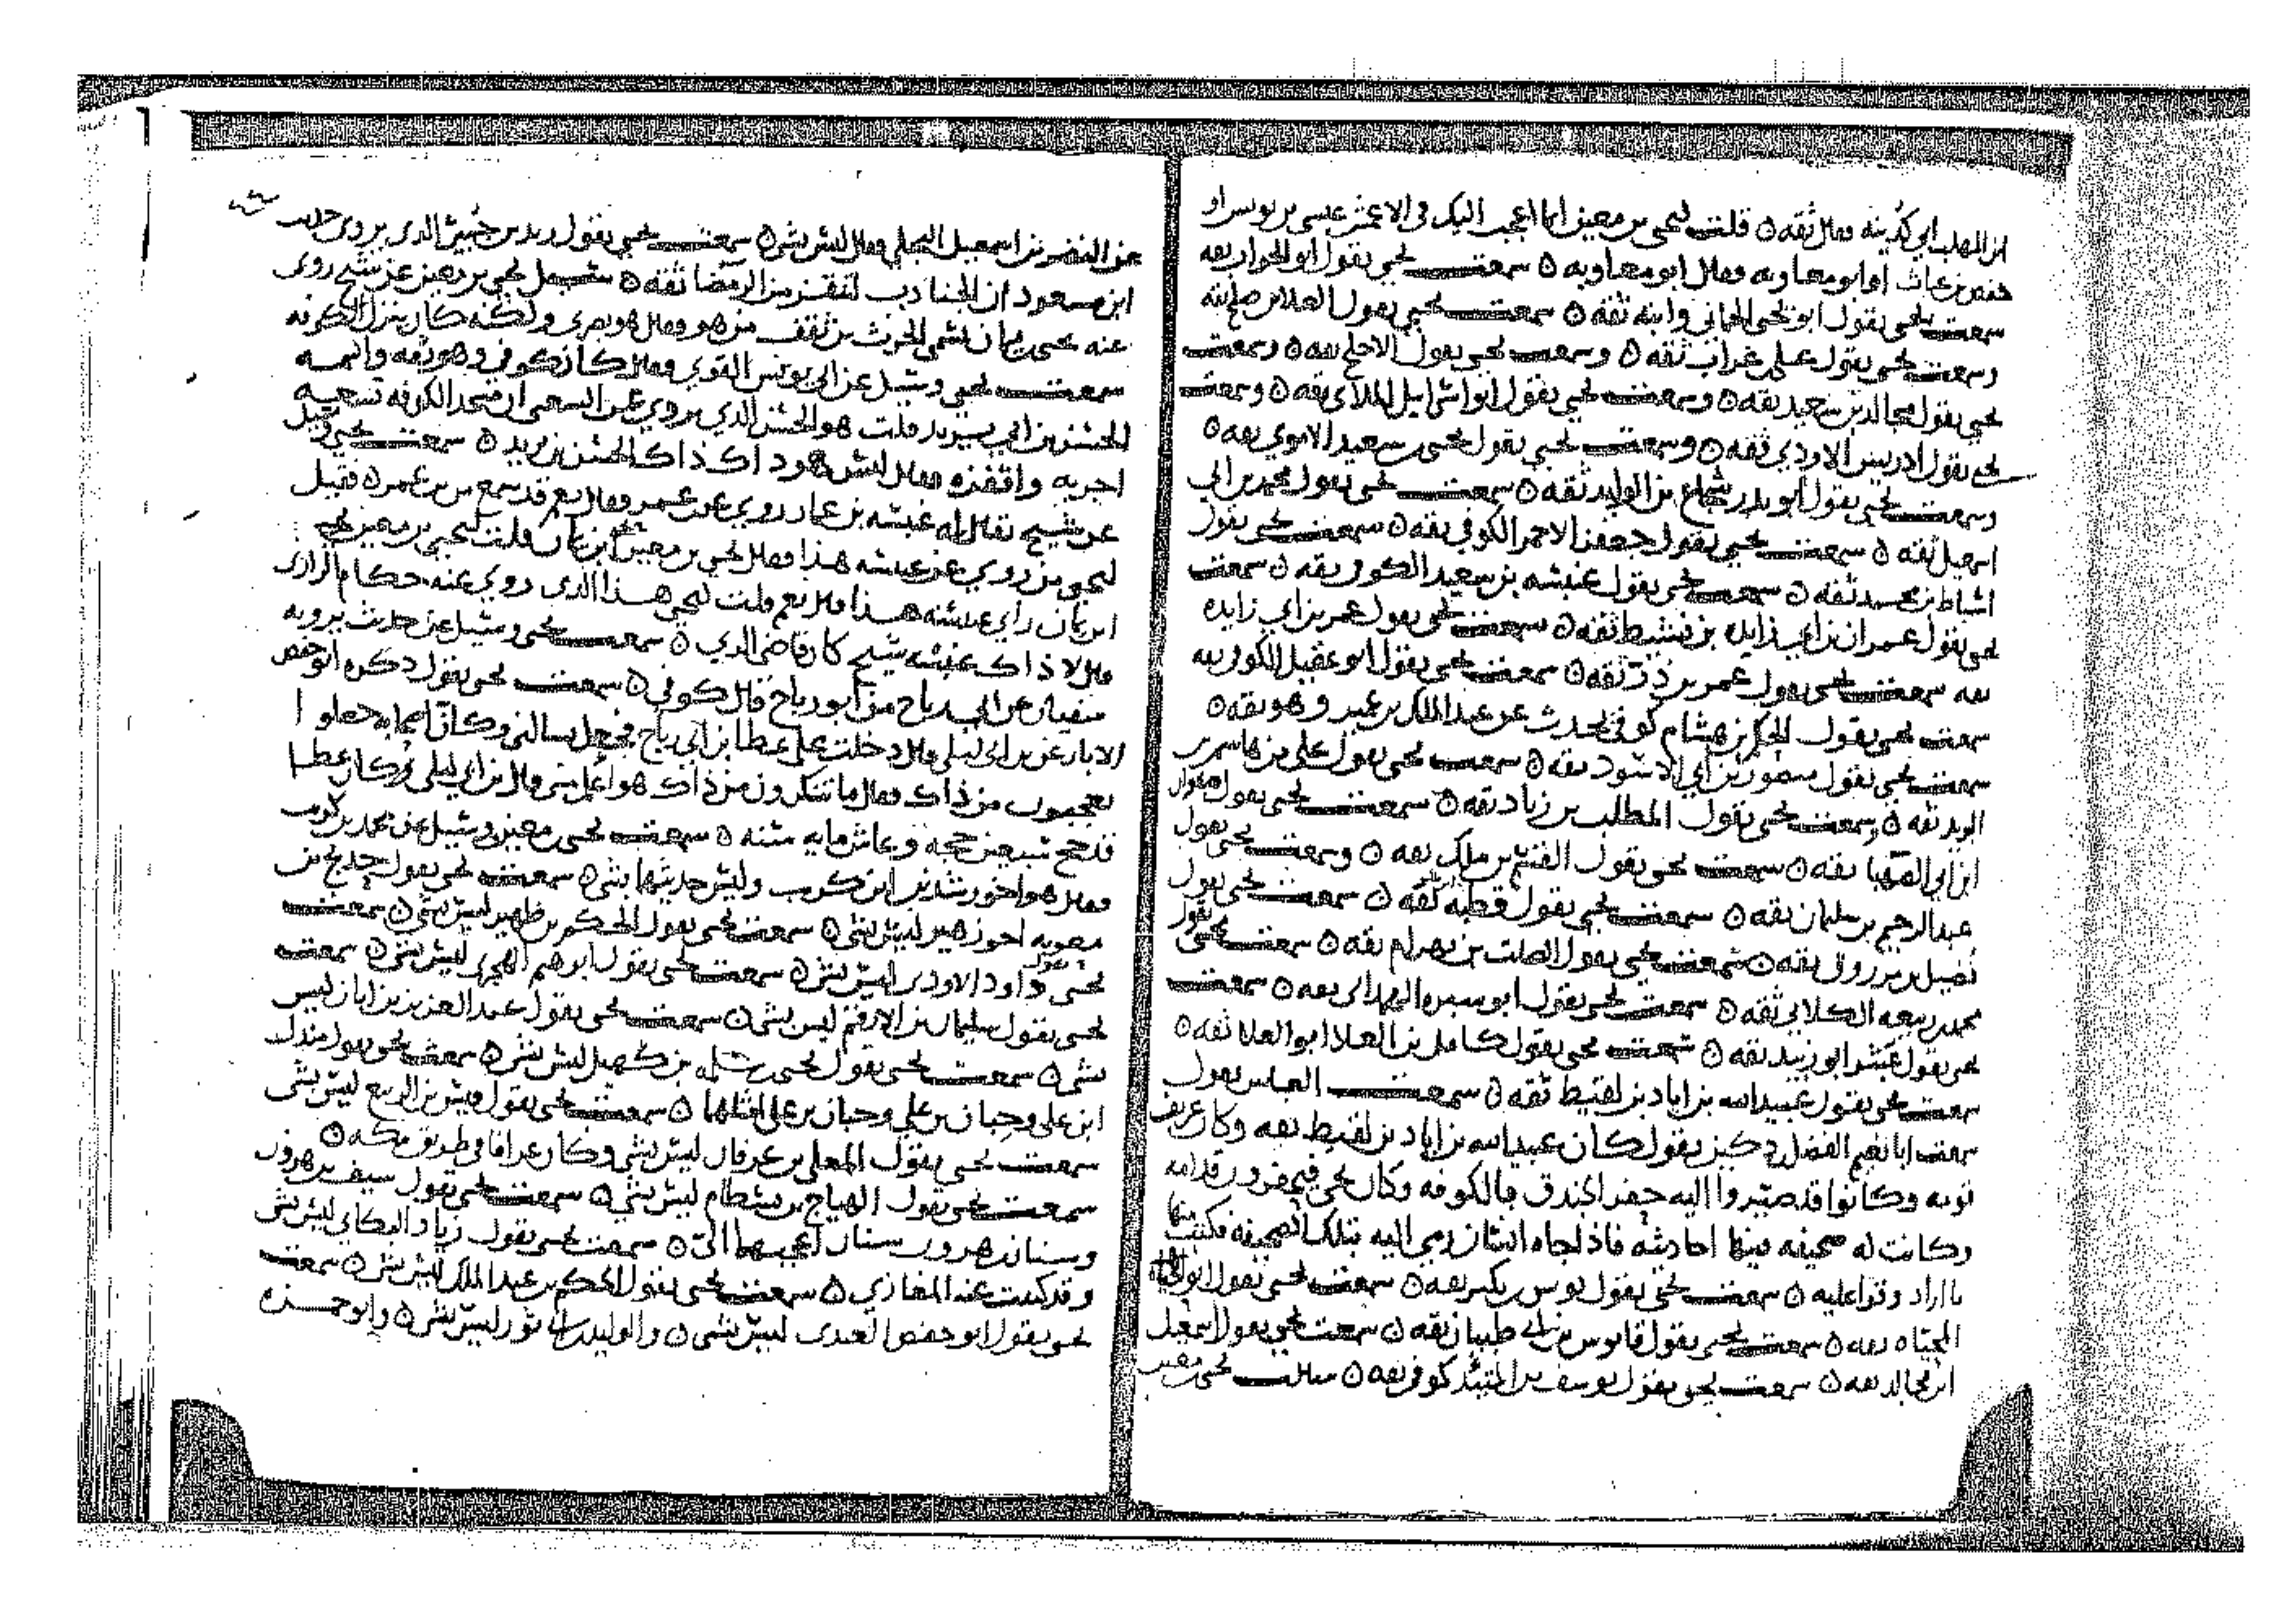 ابن المهلب ابي كدينه فقال ثقه ٥ قلت ليحيى بن معين ايما اعجب اليك في الاعمش عيسى بن يونس او
حفص بن غياث او ابو معاويه فقال ابو معاويه ٥ سمعت يحيى يقول ابو الجواب ثقه
سمعت يحيى يقول ابو يحيى الحماني وابنه ثقه ٥ سمعت يحيى يقول العلا بن صالح ثقه
وسمعت يحيى يقول علي بن غراب ثقه ٥ وسمعت يحيى يقول الاجلح ثقه ٥ وسمعت
يحيى يقول مجالد بن سعيد ثقه ٥ وسمعت يحيى يقول ابو اسرائيل الملائي ثقه ٥ وسمعت
يحيى يقول ادريس الاودي ثقه ٥ وسمعت يحيى يقول يحيى بن سعيد الاموي ثقه ٥
وسمعت يحيى يقول ابو بدر شجاع بن الوليد ثقه ٥ سمعت يحيى يقول محمد بن ابي
اسمعيل ثقه ٥ سمعت يحيى يقول جعفر الاحمر الكوفي ثقه ٥ سمعت يحيى يقول
اسباط بن محمد ثقه ٥ سمعت يحيى يقول عنبسه بن سعيد الكوفي ثقه ٥ سمعت
يحيى يقول عمران بن ابي زايده بن نشيط ثقه ٥ سمعت يحيى يقول عمر بن ابي زايده
ثقه سمعت يحيى يقول عمر بن ذر ثقه ٥ سمعت يحيى يقول ابو عقيل الكوفي ثقه
سمعت يحيى يقول الحكم بن هشام كوفي يحدث عن عبد الملك بن عمير وهو ثقه ٥
سمعت يحيى يقول منصور بن ابي الاسود ثقه ٥ سمعت يحيى يقول علي بن هاشم بن
البريد ثقه ٥ وسمعت يحيى يقول المطلب بن زياد ثقه ٥ سمعت يحيى يقول صفوان
ابن ابي الصهبا ثقه ٥ سمعت يحيى يقول القسم بن ملك ثقه ٥ وسمعت يحيى يقول
عبد الرحيم بن سليمان ثقه ٥ سمعت يحيى يقول قطبة ثقه ٥ سمعت يحيى يقول
فضيل بن مرزوق ثقه ٥ سمعت يحيى يقول الصلت بن بهرام ثقه ٥ سمعت يحيى يقول
محمد بن ربيعه الكلابي ثقه ٥ سمعت يحيى يقول ابو سبره الهمداني ثقه ٥ سمعت
يحيى يقول عبثر ابو زبيد ثقه ٥ سمعت يحيى يقول كامل بن العلا ابو العلا ثقه ٥
سمعت يحيى يقول عبيد الله بن اياد بن لقيط ثقه ٥ سمعت العباس يقول
سمعت ابا نعيم الفضل بن دكين يقول كان عبيد الله بن اياد بن لقيط ثقه وكان عريف
قومه وكانوا قد صيروا اليه حفر الخندق بالكوفه وكان يجي فيمر قدامه
وكانت له صحيفه فيها احاديثه فاذا جاه انسان رمى اليه بتلك الصحيفه فكتب منها
ما اراد وقرا عليه ٥ سمعت يحيى يقول يونس بن بكير ثقه ٥ سمعت يحيى يقول ابو
الحياه ثقه ٥ سمعت يحيى يقول قابوس بن ابي ظبيان ثقه ٥ سمعت يحيى يقول اسمعيل
ابن مجالد ثقه ٥ سمعت يحيى يقول يوسف بن كوفي ثقه ٥ سالت يحيى بن معين
عن النضر بن اسمعيل البجلي فقال ليس بشي ٥ سمعت يحيى يقول بن حبيش الذي يروي حديث
ابن مسعود ان الجنادب لتنقز من الرمضا ثقه ٥ سئل يحيى بن معين عن شيخ روى
عنه يحيى بن يمان يسمى الحرث بن ثقف من هو فقال هو بصري ولكنه كان ينزل الكوفه
سمعت يحيى وسئل عن ابي يونس القوي فقال كان كوفي وهو ثقه واسمه
الحسن بن ابي يزيد قلت هو الحسن الذي يروي عن السعبي ان مسجد الكوفه تسعه
اجربه واقفزه فقال ليس هو ذاك ذاك الحسن بن يزيد ٥ سمعت يحيى وسئل
عن شيخ يقال له عنبسه بن عمار روى عن ابن عمر فقال نعم قد سمع من بن عمر ٥ فقيل
ليحيى من روى عن عنبسه هذا فقال يحيى بن معين ابن يمان قلت ليحيى بن معين يحيى
ابن يمان راى عنبسه هذا قال نعم قلت ليحيى هذا الذي روى عنه حكام الرازي
قال لا ذاك عنبسه شيخ كان قاضي الري ٥ سمعت يحيى وسئل عن حديث يرويه
سفيان عن ابي رباح من ابو رباح قال كوفي ٥ سمعت يحيى يقول ذكره ابو حفص
الابار عن بن ابي ليلى قال دخلت على عطا بن ابي رباح فجعل يسالني وكان اصحابه جعلوا
يعجبون من ذاك فقال ما تنكرون من ذاك هو اعلم مني قال بن ابي ليلى وكان عطا
قد حج سبعين حجه وعاش مايه سنه ٥ سمعت يحيى بن معين وسئل عن محمد بن كريب
فقال هو اخو رشدين ابن كريب وليس حديثهما بشي ٥ سمعت يحيى يقول حديج بن
معويه اخو زهير ليس بشي ٥ سمعت يحيى يقول الحكم بن ظهير ليس بشي ٥ سمعت
يحيى يقول داود الاودي ليس بشي ٥ سمعت يحيى يقول ابرهيم الهجري ليس بشي ٥ سمعت
يحيى يقول سليمان بن الارقم ليس بشي ٥ سمعت يحيى يقول عبد العزيز بن ابان ليس
بشي ٥ سمعت يحيى يقول يحيى بن سلمه بن كهيل ليس بشي ٥ سمعت يحيى يقول مندل
ابن علي وحبان بن علي وحبان بن علي امثلهما ٥ سمعت يحيى يقول قيس بن الربيع ليس بشي
سمعت يحيى يقول المعلى بن عرفان ليس بشي وكان عرافا في طريق مكه ٥
سمعت يحيى يقول الهياج بن بسطام ليس بشي ٥ سمعت يحيى يقول سيف بن هرون
وسنان بن هرون سنان اعجبهما الي ٥ سمعت يحيى يقول زياد البكاي ليس بشي
وقد كتبت عنه المغازي ٥ سمعت يحيى يقول الحكم بن عبد الملك ليس بشي ٥ سمعت
يحيى يقول ابو حفص العبدي ليس بشي ٥ والوليد بن ابي ثور ليس بشي ٥ وابو حمزه